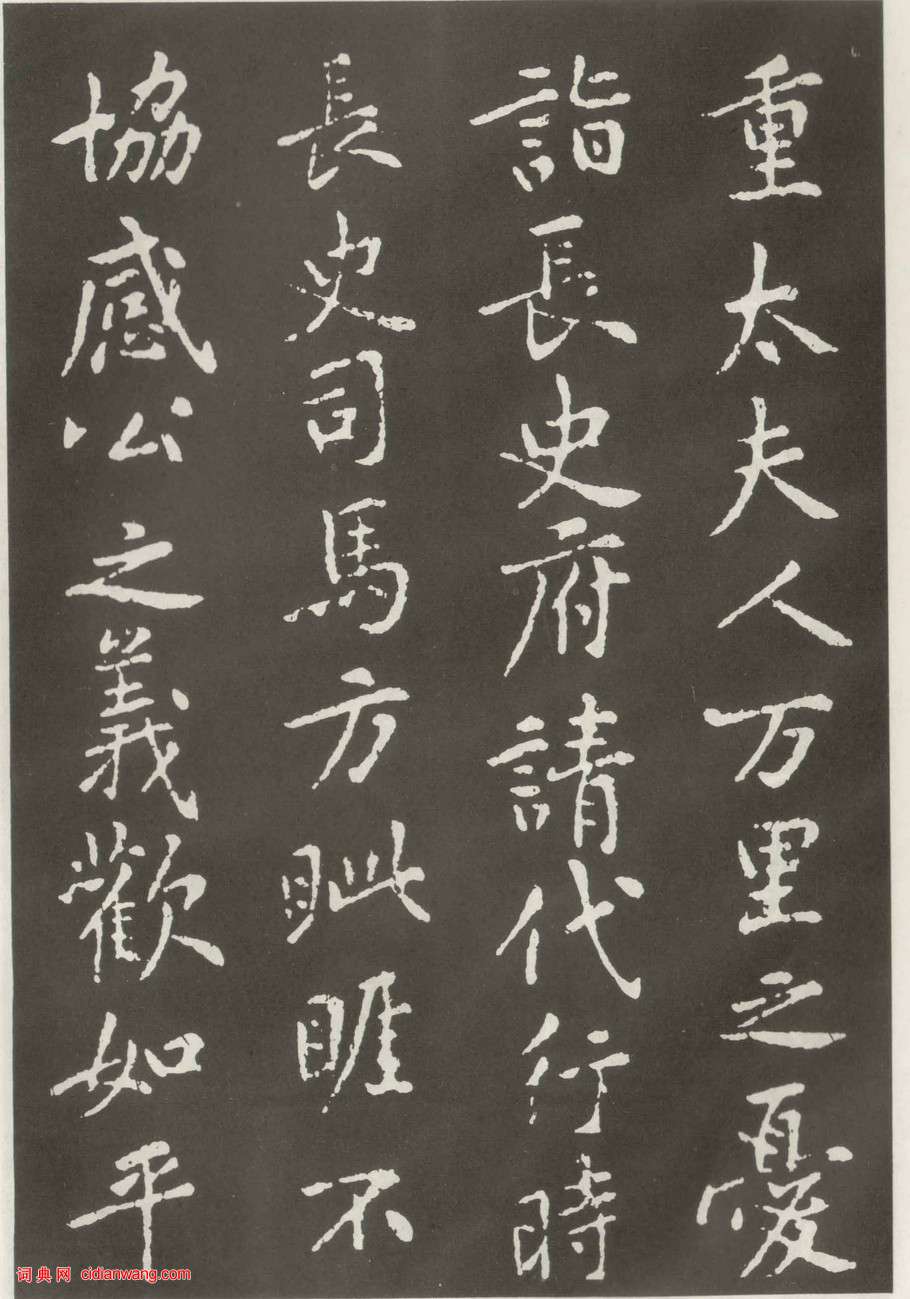 重太夫人万里之憂
詣長史府請代行時
長史司馬方眦睢不
協感公之義歡如平
词典网 cidianwang.com